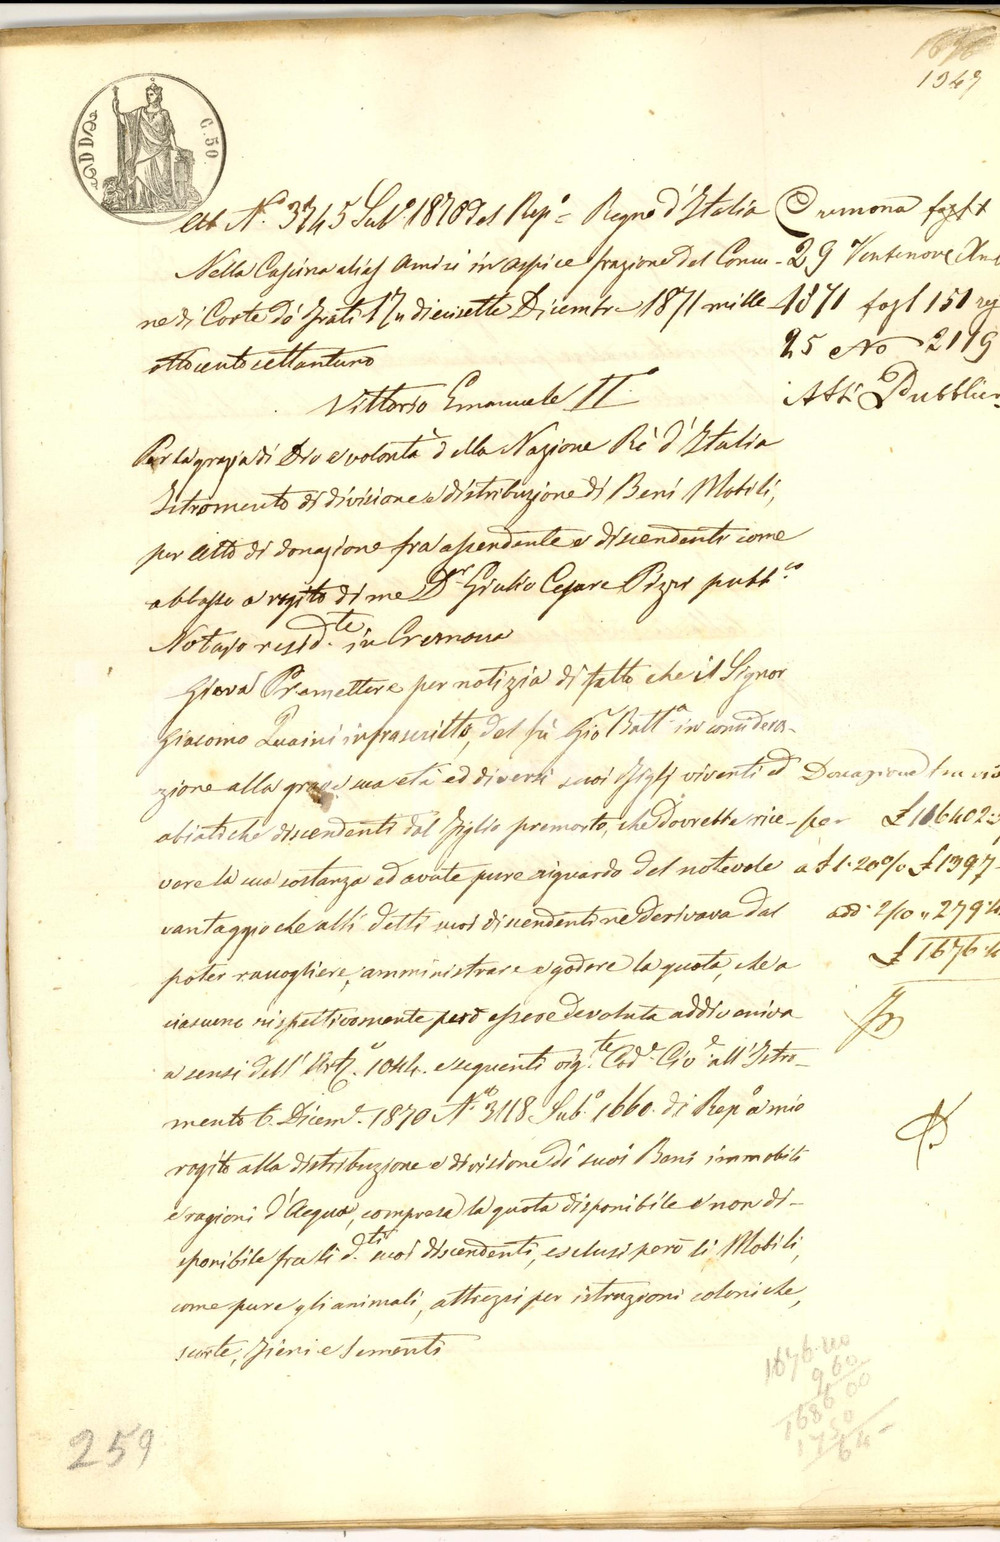 1676
1347
C. 50.
All N.º 3745 Sub.º 1878 del Rep.º = Regno d'Italia
Nella Cascina alias Amisi in Aspice frazione del Comu-
ne di Corte de' Frati 17 diecisette Dicembre 1871 mille
ottocento settantuno
Vittorio Emanuele IIº
Per la grazia di Dio e volontà della Nazione Rè d'Italia
Istromento di divisione e distribuzione di Beni Mobili,
per Atto di donazione fra ascendente e discendenti come
abbasso a rogito di me D.r Giulio Cesare Pizzi pubb.co
Notajo resid.te in Cremona
Giova Premettere per notizia di fatto che il Signor
Giacomo Quaini infrascritto, del fù Gio Batt.a in considera-
zione alla grave sua età ed diversi suoi figlj viventi ed
abiatiche discendenti dal figlio premorto, che dovrebbe rice-
vere la sua sostanza ed avute pure riguardo del notevole
vantaggio che alli detti suoi discendenti ne derivava dal
poter raccogliere, amministrare e godere la quota, che a
ciascuno rispettivamente però essere devoluta addiveniva
a sensi dell' Art.º 1044. e seguenti vig.te Cod.e Civ.e all'Istro-
mento 6. Dicem.e 1870 N.º 3118 Sub.º 1660. di Rep.º a mio
rogito alla distribuzione e divisione di suoi Beni immobili
e ragioni d'Acqua, compresa la quota disponibile e non di-
sponibile fra li d.ti suoi discendenti, esclusi però li Mobili,
come pure gli animali, attrezzi per istruzioni coloniche,
scorte, fieni e sementi
Cremona
29 Ventinove
1871 fogl 151
25 No 2119
Atti Pubblici
Donazione
per £ 116402
a £ 1.20 % £ 1397
add 2/10 " 279
£ 1676
1676
960
1686 00
1750
64
259